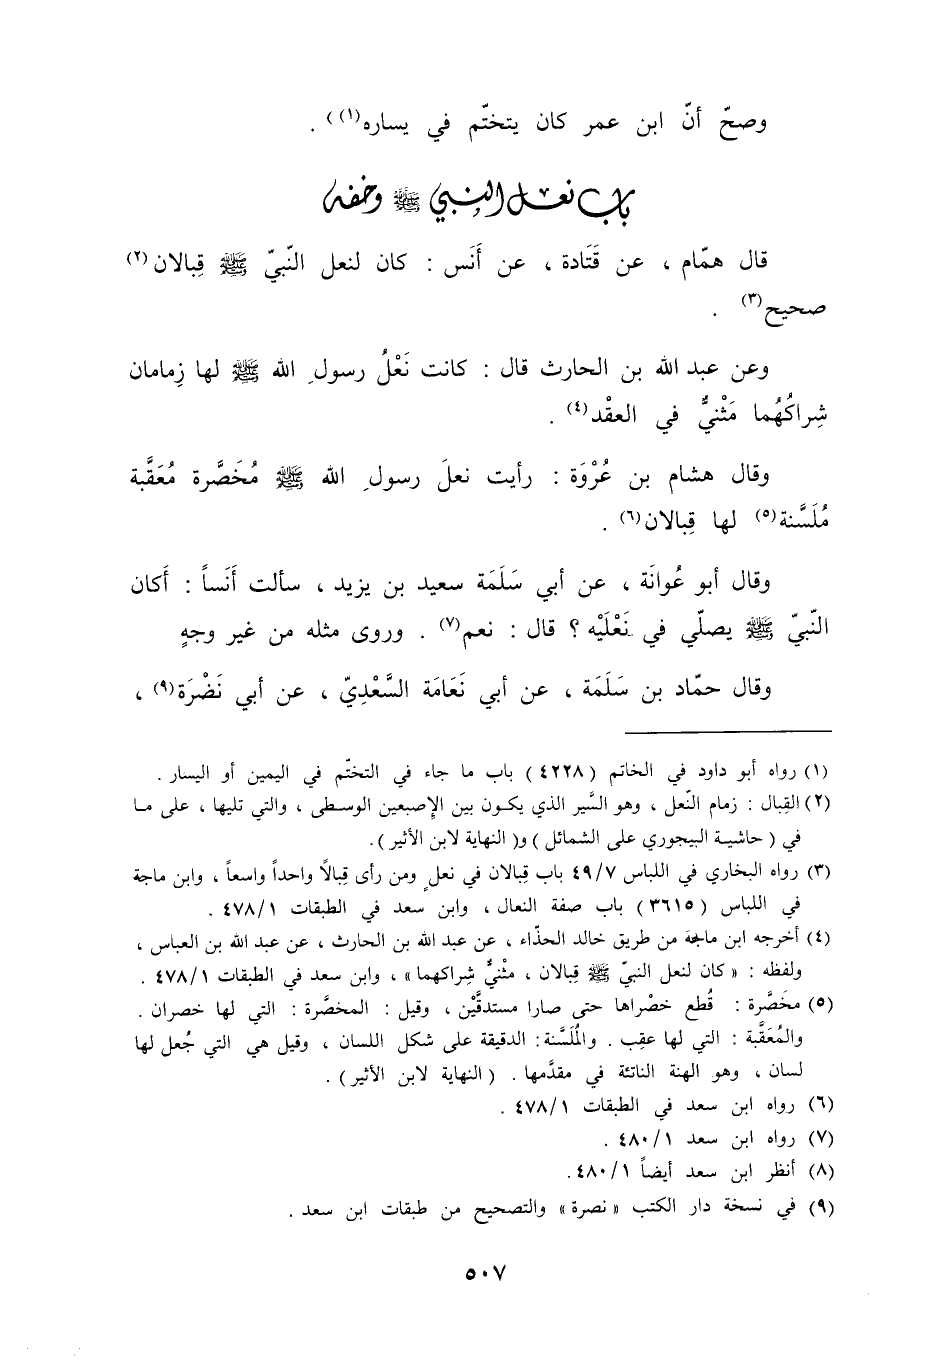 وصحّ أنّ ابن عمر كان يتختّم في يساره(١)) .
باب نعل النبي ﷺ وخفه
قال همّام ، عن قَتَادة ، عن أَنَس : كان لنعل النّبيّ ﷺ قِبالان(٢)
صحيح(٣) .
وعن عبد الله بن الحارث قال : كانت نَعْلُ رسولِ الله ﷺ لها زِمامان
شِراكُهُما مَثْنيٌّ في العقْد(٤) .
وقال هشام بن عُرْوَة : رأيت نعلَ رسولِ الله ﷺ مُخَصَّرة مُعَقَّبة
مُلَسَّنة(٥) لها قِبالان(٦) .
وقال أبو عُوانَة ، عن أبي سَلَمَة سعيد بن يزيد ، سألت أَنَساً : أَكان
النّبيّ ﷺ يصلّي في نَعْلَيْه ؟ قال : نعم(٧) . وروى مثله من غير وجهٍ
وقال حمّاد بن سَلَمَة ، عن أبي نَعَامَة السَّعْديّ ، عن أبي نَضْرَة(٩) ،
(١) رواه أبو داود في الخاتم ( ٤٢٢٨ ) باب ما جاء في التختّم في اليمين أو اليسار .
(٢) القِبال : زمام النّعل ، وهو السَّير الذي يكون بين الإصبعين الوسطى ، والتي تليها ، على ما
في ( حاشية البيجوري على الشمائل ) و( النهاية لابن الأثير ).
(٣) رواه البخاري في اللباس ٤٩/٧ باب قِبالان في نعلٍ ومن رأى قِبالًا واحداً واسعاً ، وابن ماجة
في اللباس ( ٣٦١٥ ) باب صفة النعال ، وابن سعد في الطبقات ٤٧٨/١ .
(٤) أخرجه ابن ماجة من طريق خالد الحذّاء ، عن عبد الله بن الحارث ، عن عبد الله بن العباس ،
ولفظه : « كان لنعل النبيّ ﷺ قِبالان ، مثْنيٌّ شِراكهما » ، وابن سعد في الطبقات ٤٧٨/١ .
(٥) مخَصَّرة : قُطع خصْراها حتى صارا مستدقَّيْن ، وقيل : المخصَّرة : التي لها خصران .
والمُعَقَّبة : التي لها عقِب . والمُلَسَّنة: الدقيقة على شكل اللسان ، وقيل هي التي جُعل لها
لسان ، وهو الهنة الناتئة في مقدَّمها . ( النهاية لابن الأثير ) .
(٦) رواه ابن سعد في الطبقات ٤٧٨/١ .
(٧) رواه ابن سعد ٤٨٠/١ .
(٨) أنظر ابن سعد أيضاً ٤٨٠/١.
(٩) في نسخة دار الكتب « نصرة » والتصحيح من طبقات ابن سعد .
٥٠٧